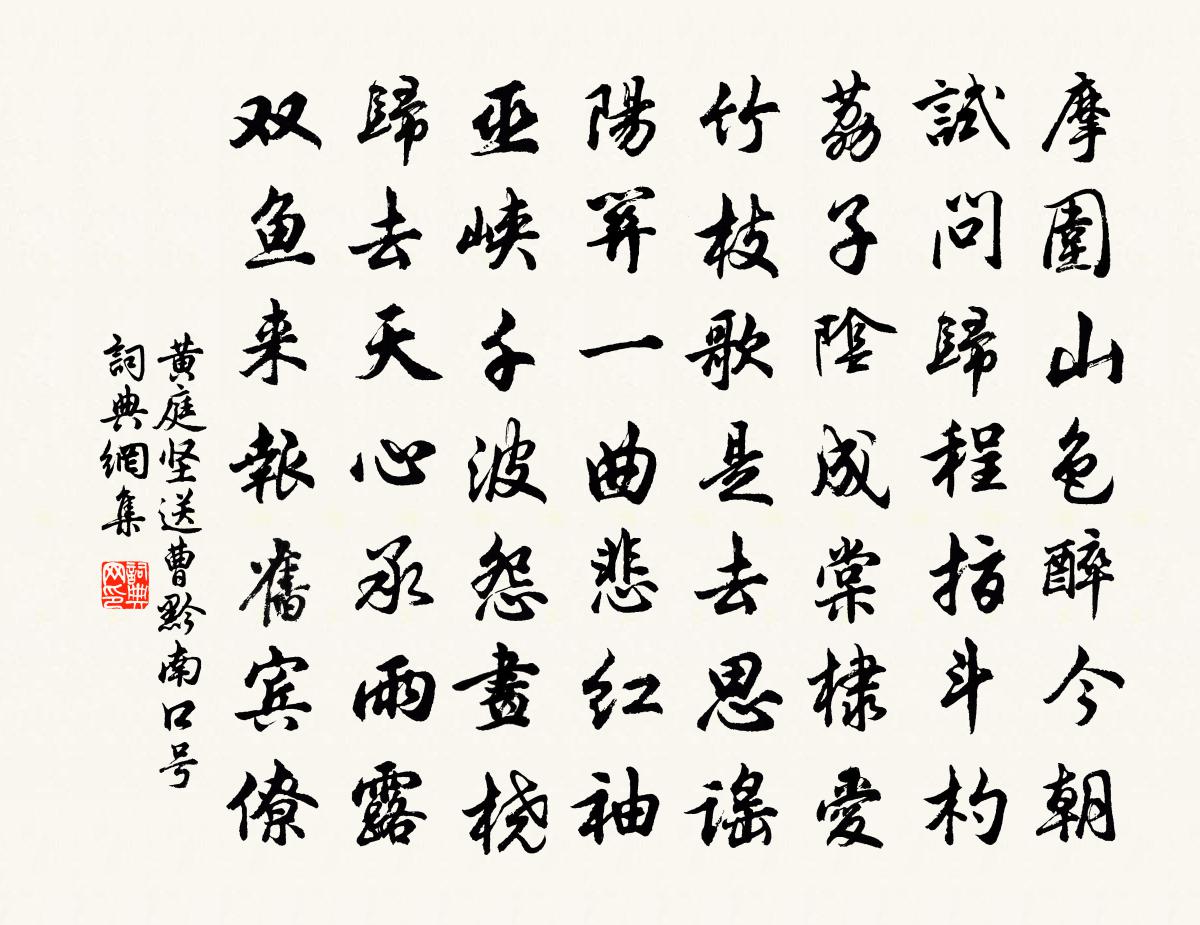 摩圍山色醉今朝
試問歸程指斗杓
荔子陰成棠棣愛
竹枝歌是去思謠
陽關一曲悲红袖
巫峽千波怨畫桡
歸去天心承雨露
双鱼来報舊宾僚
黄庭坚送曹黔南口号
詞典網集
詞典网印